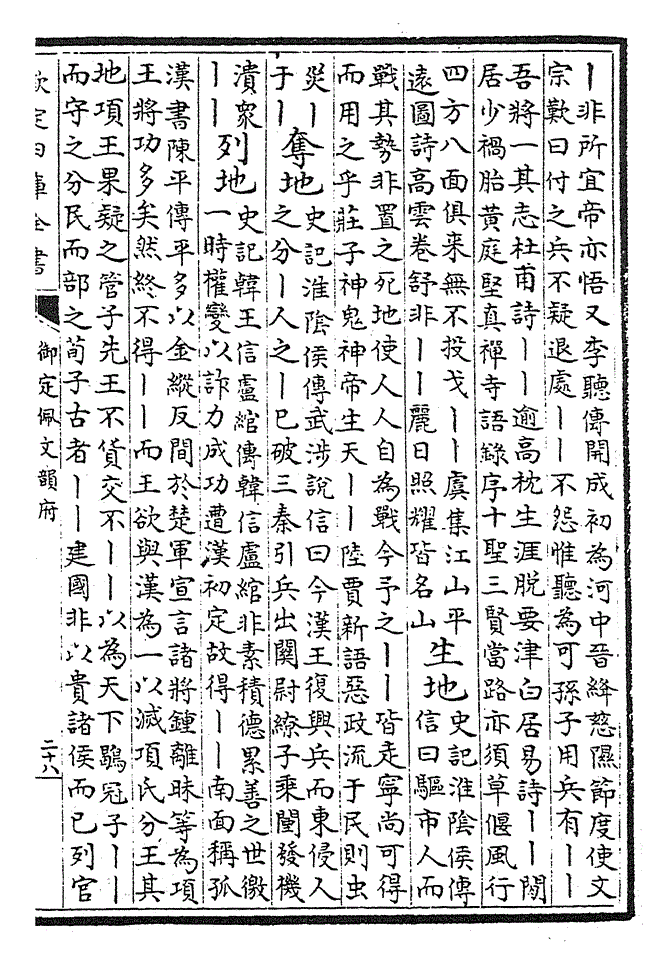 丨非所宜帝亦悟又李聽傳開成初為河中晉絳慈隰節度使文
宗歎曰付之兵不疑退處丨丨不怨惟聽為可孫子用兵有丨丨
吾將一其志杜甫詩丨丨逾高枕生涯脫要津白居易詩丨丨閒
居少禍胎黃庭堅真禪寺語錄序十聖三賢當路亦須草偃風行
四方八面俱来無不投戈丨丨虞集江山平
遠圖詩高雲卷舒非丨丨麗日照耀皆名山
生地
史記淮陰侯傳
信曰驅市人而
戰其勢非置之死地使人人自為戰今予之丨丨皆走寧尚可得
而用之乎莊子神鬼神帝生天丨丨陸賈新語惡政流于民則虫
災丨
于丨
奪地
史記淮陰侯傳武涉說信曰今漢王復興兵而東侵人
之分丨人之丨已破三秦引兵出關尉繚子乘闉發機
潰衆
丨丨
列地
史記韓王信盧綰傳韓信盧綰非素積德累善之世徼
一時權變以詐力成功遭漢初定故得丨丨南面稱孤
漢書陳平傳平多以金縱反間於楚軍宣言諸將鍾離昧等為項
王將功多矣然終不得丨丨而王欲與漢為一以滅項氏分王其
地項王果疑之管子先王不貨交不丨丨以為天下鶡冠子丨丨
而守之分民而部之荀子古者丨丨建國非以貴諸侯而已列官
欽定四庫全書
御定佩文韻府
二十八